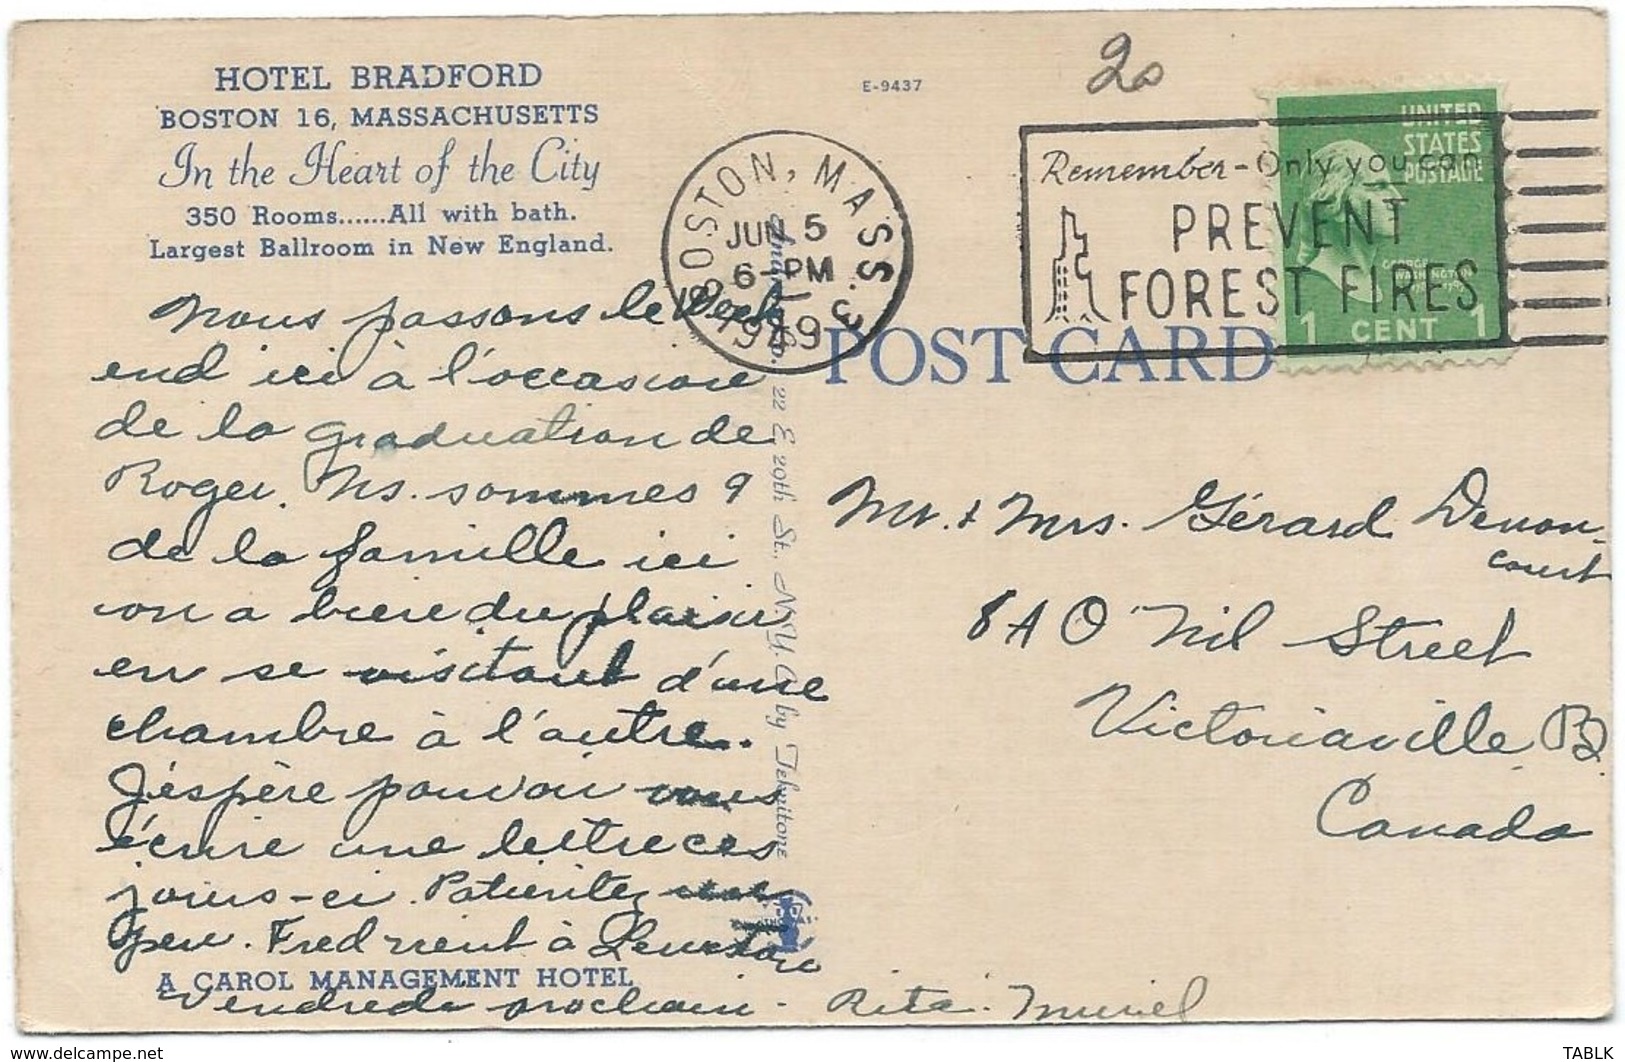 HOTEL BRADFORD
BOSTON 16, MASSACHUSETTS
In the Heart of the City
350 Rooms......All with bath.
Largest Ballroom in New England.
Nous passons le Week
end ici à l'occasion
de la graduation de
Roger. Ns. sommes 9
de la famille ici
on a bien du plaisir
en se visitant d'une
chambre à l'autre.
J'espère pouvoir vous
écrire une lettre ces
jours-ci. Patientez un
peu. Fred vient à Lewiston
A CAROL MANAGEMENT HOTEL
Vendredi prochain - Rita. Muriel
22 E 20th St. N.Y.C by Teknitone
E-9437
20
BOSTON, MASS. 3
JUN 5
6-PM
1949
Remember-Only you can
PREVENT
FOREST FIRES
UNITED
STATES
POSTAGE
GEORGE
WASHINGTON
1 CENT 1
POST CARD
Mr. & Mrs. Gérard Denon-
court
8A O'Neil Street
Victoriaville
Canada
https://www.delcampe.net
TABLK